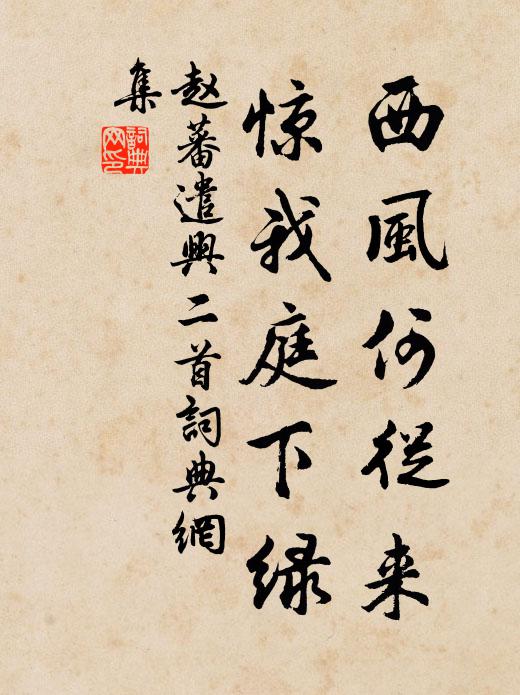 西風何從来
惊我庭下绿
赵蕃遣興二首詞典網
集
詞典
网印